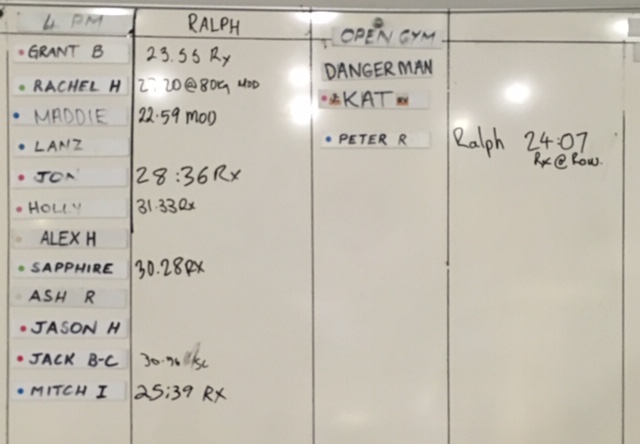 4 PM RALPH OPEN GYM
GRANT B 23.55 Rx
RACHEL H 27.20 @ 80kg MOD
MADDIE 22.59 MOD
LANZ
JON 28:36 Rx
HOLLY 31.33 Rx
ALEX H
SAPPHIRE 30.28 RX
ASH R
JASON H
JACK B-C
MITCH I 25:39 RX
DANGERMAN
KAT
PETER R Ralph 24:07
Rx @ Row.